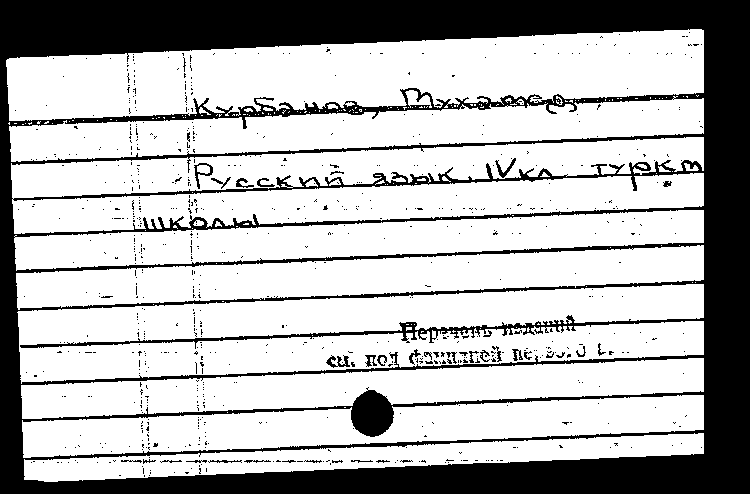 Курбанов, Мухамед,
Русский язык. IV кл туркм.
школы
Перечень изданий
см. под фамилией